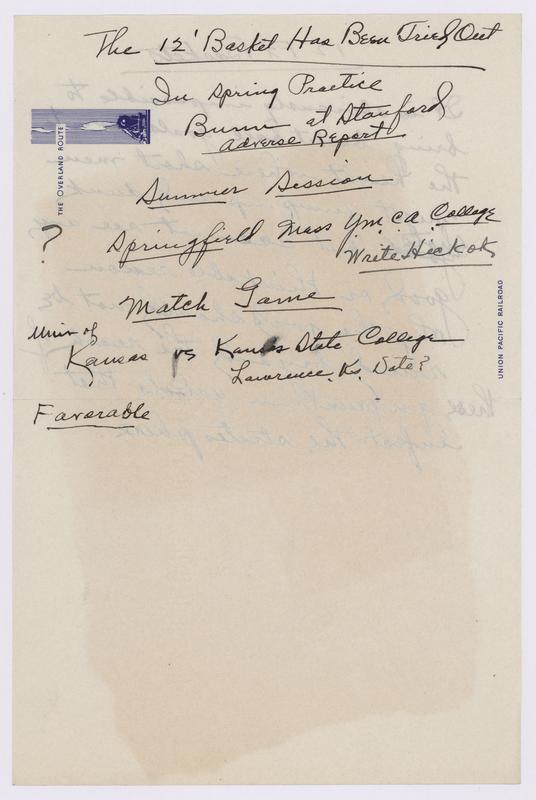 The 12' Basket Has Been Tried Out
In Spring Practice
Bunn at Stanford
Adverse Report
THE OVERLAND ROUTE
Summer Session
? Springfield Mass Y.M.C.A. College
Write Hickok
Match Game
Univ of
Kansas vs Kansas State College
Lawrence, Ks. Date?
Favorable
UNION PACIFIC RAILROAD